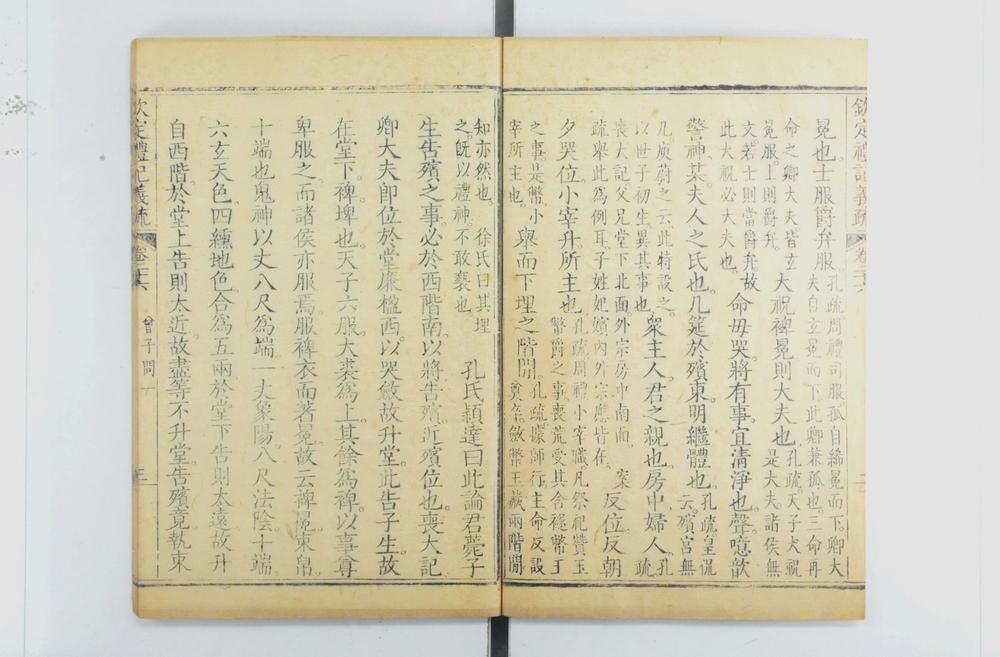 欽定禮記義疏 卷二十六 二
冕也士服爵弁服
孔疏周禮司服孤自絺冕而下卿大
夫自玄冕而下此卿兼孤也三命再
命之卿大夫皆玄
冕服上則爵弁
大祝裨冕則大夫也
孔疏天子大祝
是大夫諸侯無
文若士則當爵弁故
此大祝必大夫也
命毋哭將有事宜清淨也聲噫歆
警神某夫人之氏也几筵於殯東明繼體也
孔疏皇侃
云殯宮無
几庾蔚之云此特設之
以世子初生異其事也
眾主人君之親也房中婦人
孔
疏
喪大記父兄堂下北面外宗房中南面 案
疏舉此為例耳子姓妃嬪內外宗應皆在
反位反朝
夕哭位小宰升所主也
孔疏周禮小宰職凡祭祀贊玉
幣爵之事喪荒受其含襚幣玉
之事是幣小
宰所主也
舉而下埋之階間
孔疏據師行主命反設
奠卒斂幣玉藏兩階間
知亦然也 徐氏曰其埋
之既以禮神不敢褻也
孔氏穎達曰此論君薨子
生告殯之事必於西階南以將告殯近殯位也喪大記
卿大夫即位於堂廉楹西以哭斂故升堂此告子生故
在堂下裨埤也天子六服大裘為上其餘為裨以事尊
卑服之而諸侯亦服焉服裨衣而著冕故云裨冕束帛
十端也鬼神以丈八尺為端一丈象陽八尺法陰十端
六玄天色四纁地色合為五兩於堂下告則太遠故升
自西階於堂上告則太近故盡等不升堂告殯竟執束
欽定禮記義疏 卷二十六 曾子問一 三